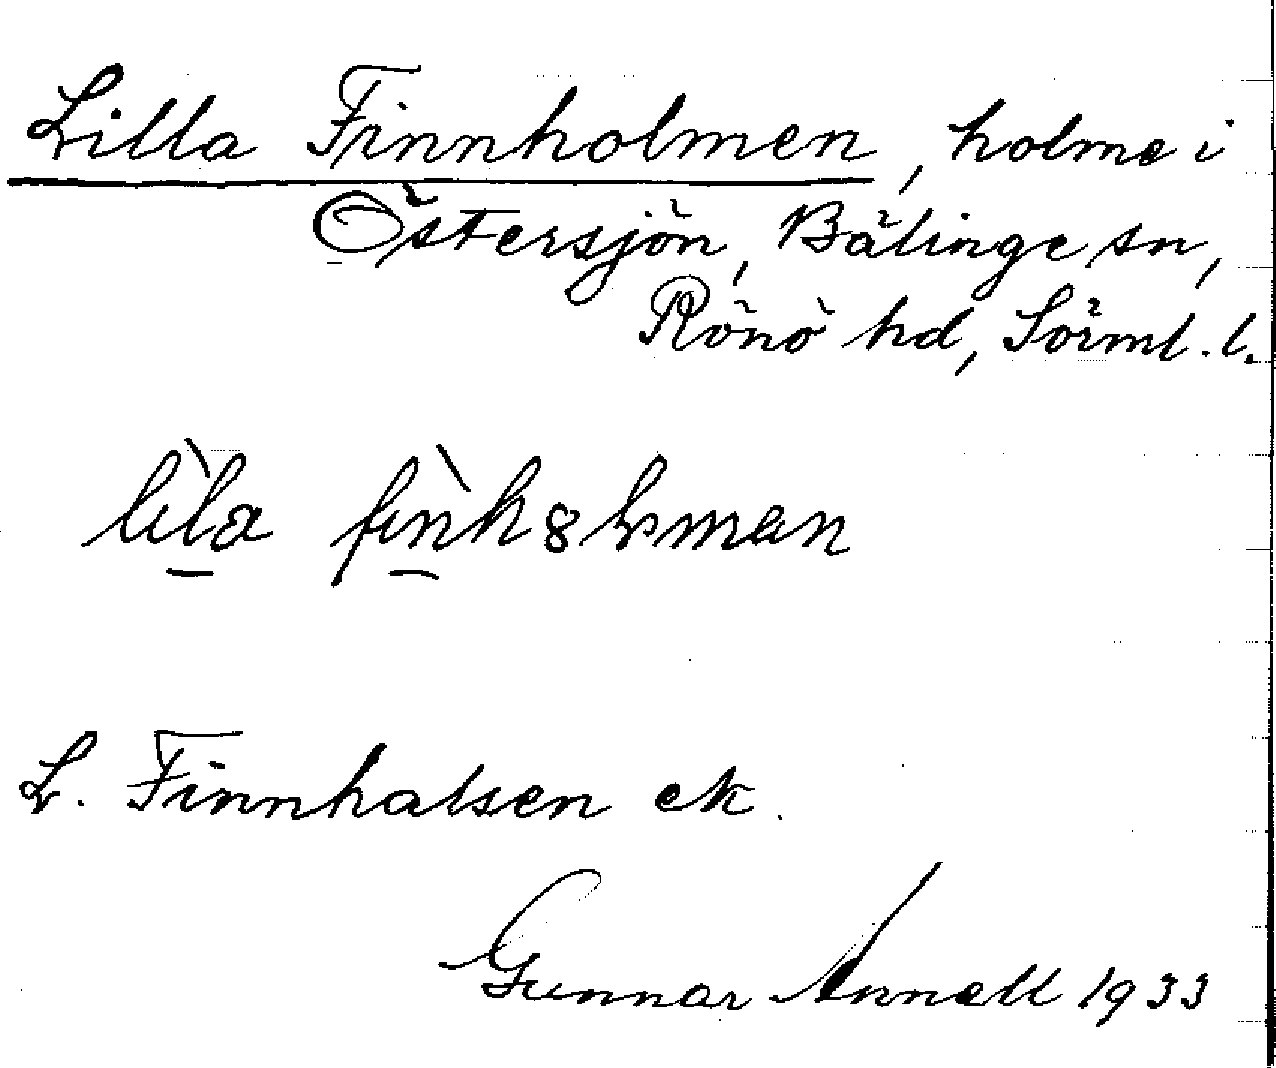 Lilla Finnholmen, holme i
Östersjön, Bälinge sn,
Rönö hd, Sörml. l.
L. Finnhalsen ek.
Gunnar Annell 1933